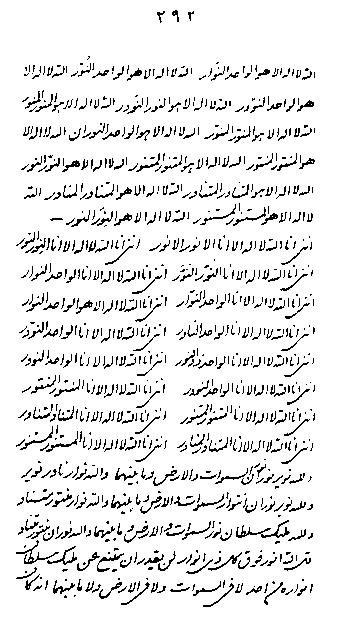 ٢٩٢
الله لا اله الا هو الواحد النوار الله لا اله الا هو الواحد النور الله لا اله الا
هو الواحد النودر الله لا اله الا هو النور النودر الله لا اله الا هو النور المنور
الله لا اله الا هو المنور الله لا اله الا هو الواحد النوران الله لا اله الا
هو المنتور المنتور الله لا اله الا هو المتنور المتنور الله لا اله الا هو النور النور
الله لا اله الا هو المتناور المتناور الله لا اله الا هو المتناور المتنادر الله
لا اله الا هو المستنور المستنور الله لا اله الا هو النور النور
اننى انا الله لا اله الا انا الانور الانور اننى انا الله لا اله الا انا النور النور
اننى انا الله لا اله الا انا النور النور اننى انا الله لا اله الا انا الواحد النوار
اننى انا الله لا اله الا انا الواحد النوار اننى انا الله لا اله الا هو الواحد النور
اننى انا الله لا اله الا انا الواحد النادر اننى انا الله لا اله الا انا الواحد النودر
اننى انا الله لا اله الا انا الواحد اننى انا الله لا اله الا انا الواحد النور
اننى انا الله لا اله الا انا الواحد النودر اننى انا الله لا اله الا انا المنتور المنتور
اننى انا الله لا اله الا انا المتنور المتنور اننى انا الله لا اله الا انا المتناور المتنادر
اننى انا الله لا اله الا انا المتنادر المتنادر اننى انا الله لا اله الا انا المستنور المستنور
ولله نوير نوران السموات والارض وما بينهما والله نوار نادر نوير
ولله نوير نوران انوار السموات والارض وما بينهما والله نوار منتور متناور
ولله مليك سلطان نور السموات والارض وما بينهما والله نوران منور متناور
قل الله انور فوق كل ذى انوار لن يقدر ان يمتنع عن مليك سلطان
انواره من احد لا فى السموات ولا فى الارض ولا ما بينهما انه كان